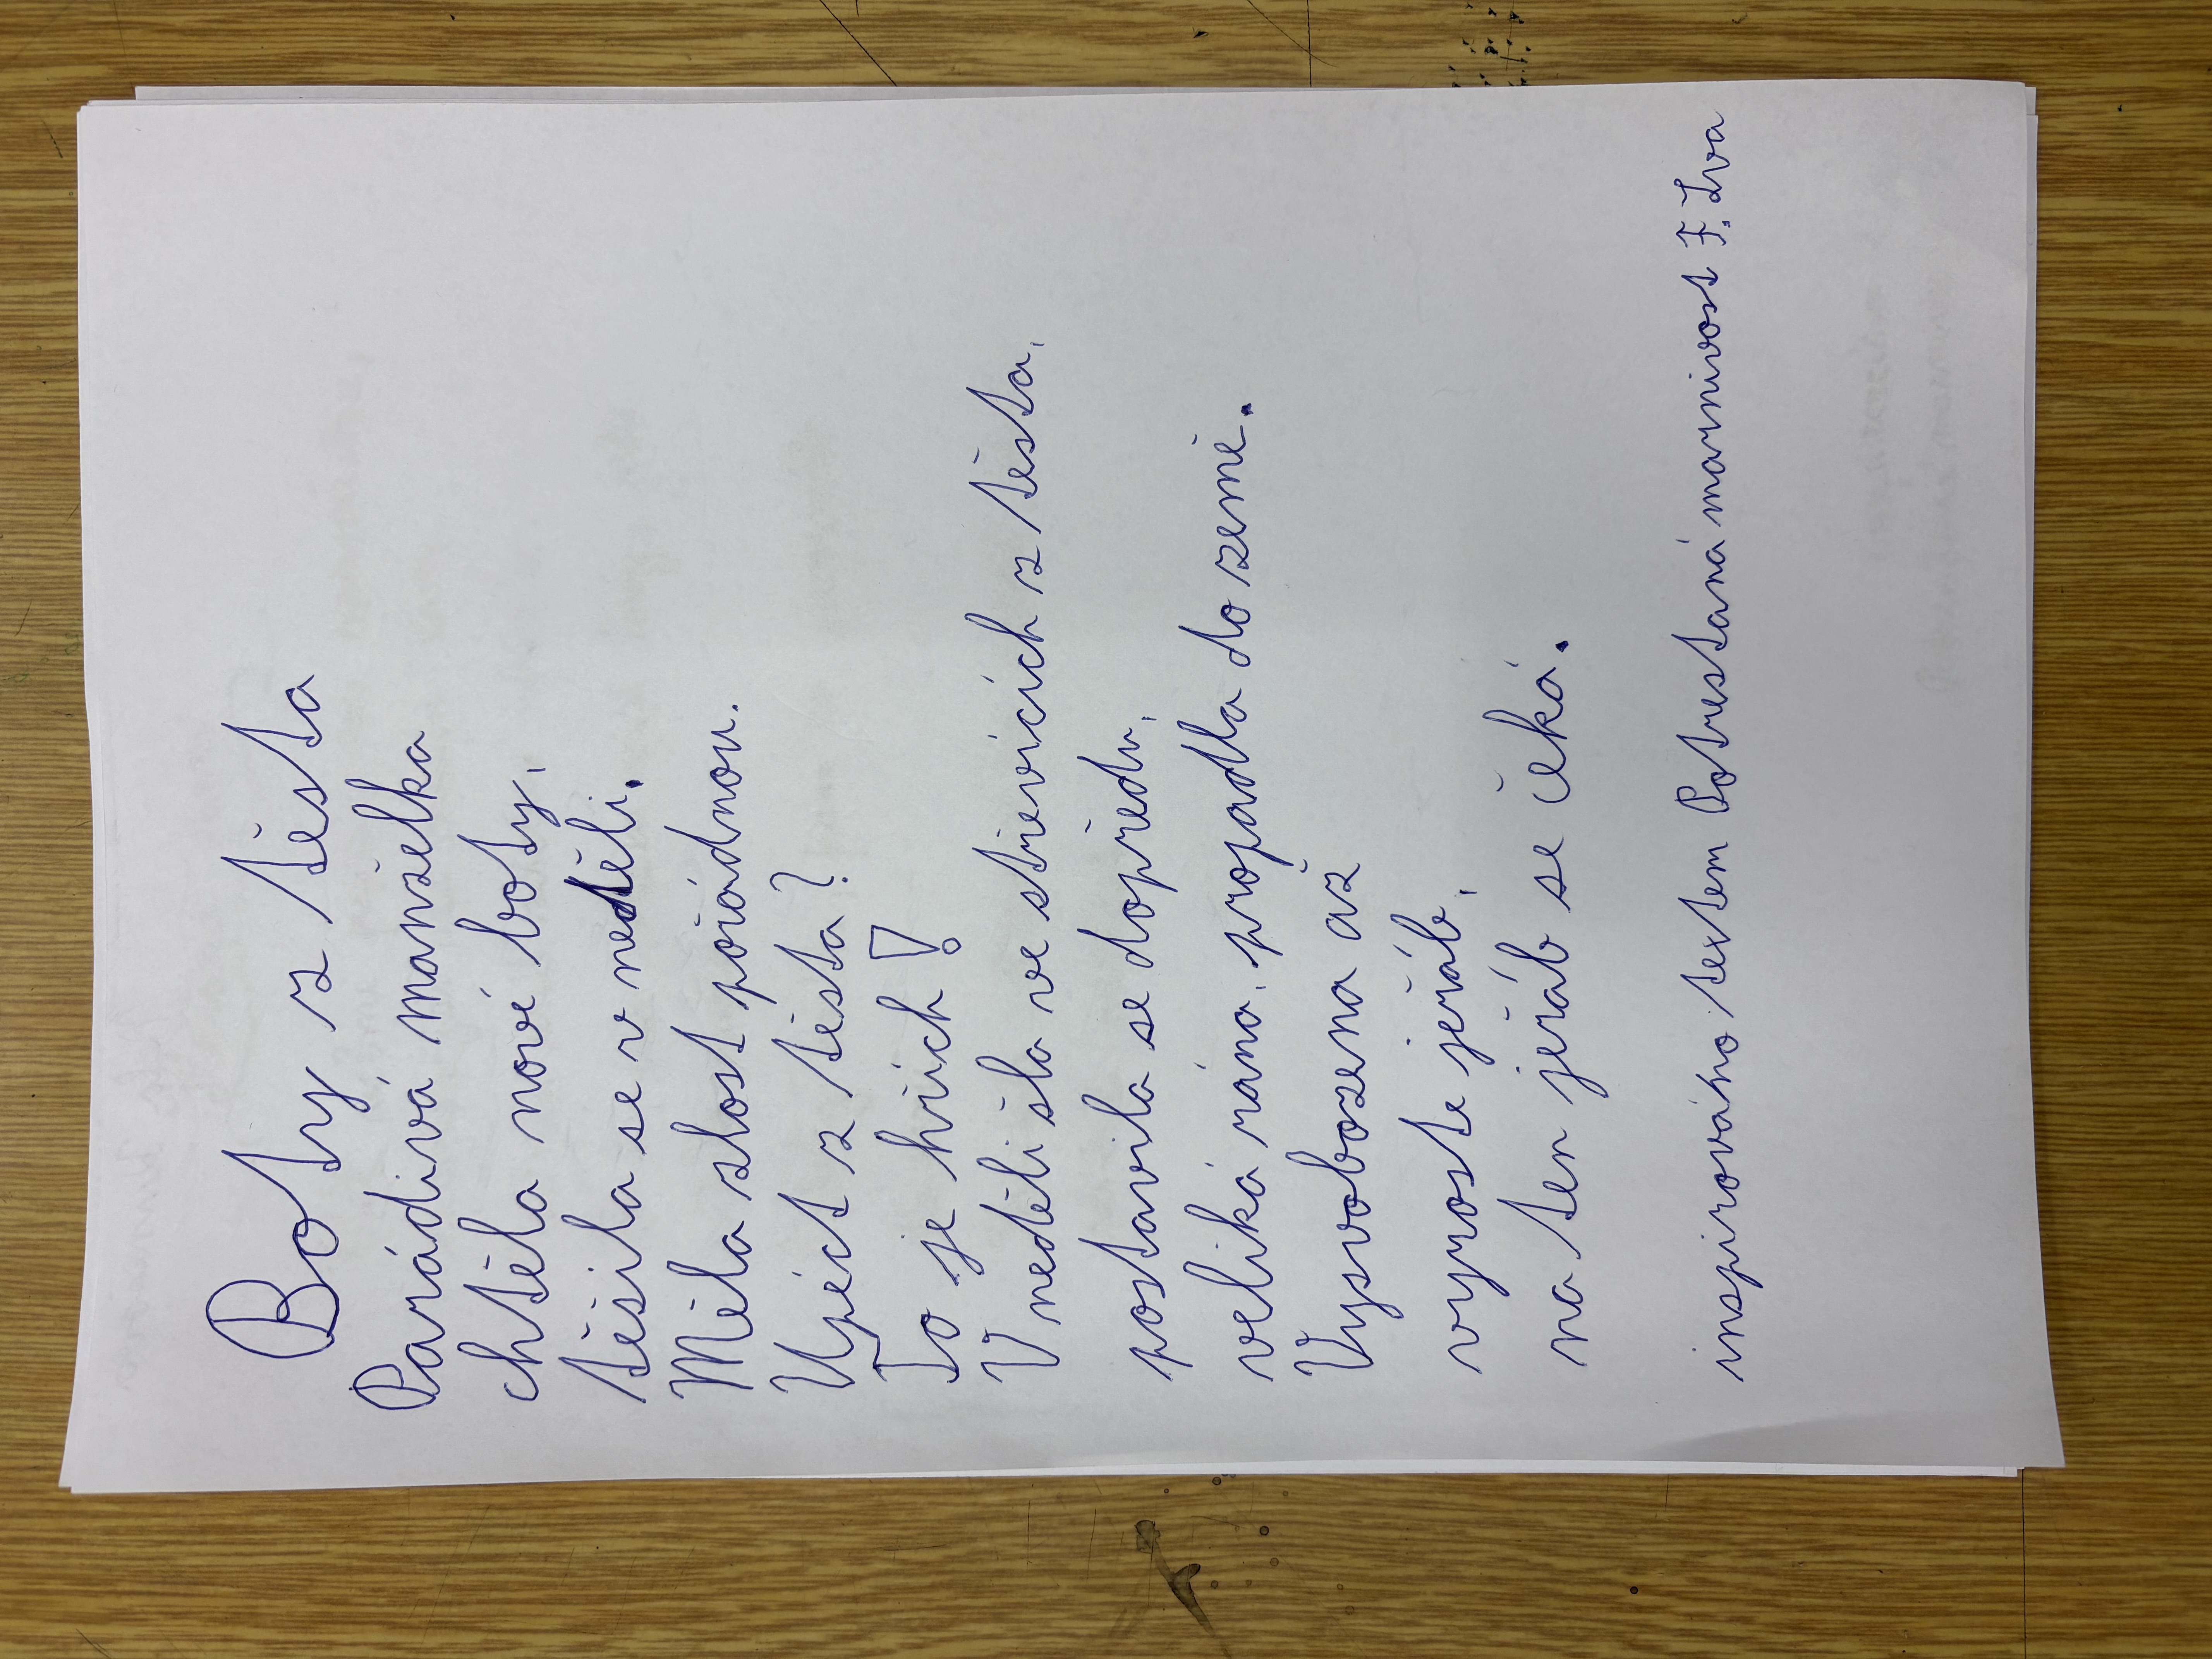 Boty z těsta
Parádivá manželka
chtěla nové boty,
těšila se v neděli.
Měla zlost pořádnou.
Upéct z těsta?
To je hřích!
V neděli šla ve střevících z těsta,
postavila se dopředu,
veliká rána, propadla do země.
Vysvobozena až
vyroste jeřáb,
na ten jeřáb se čeká.
inspirováno textem Potrestaná marnivost F. Lva